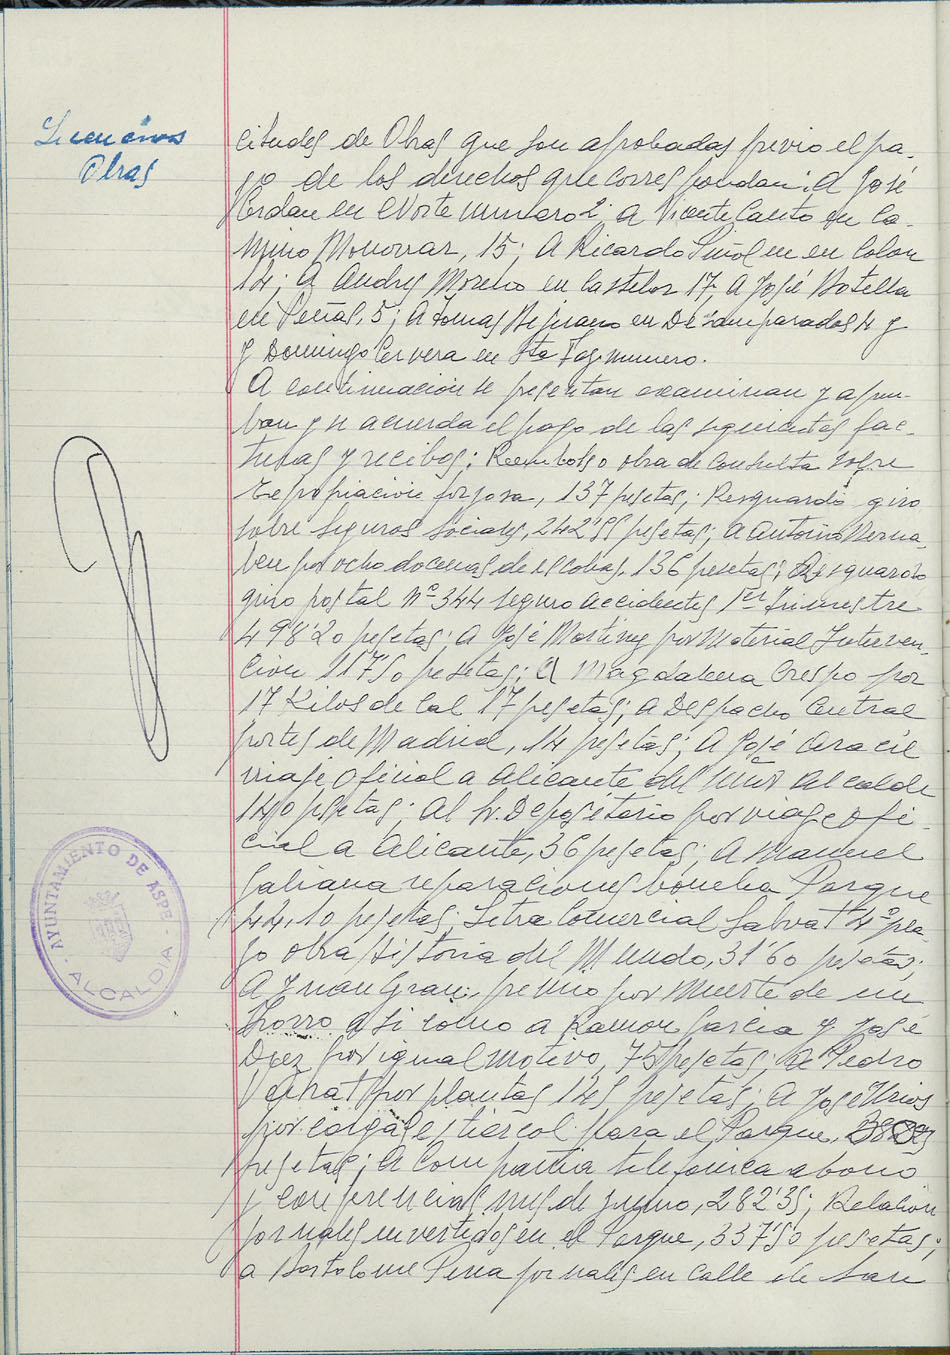 Licencias
Obras
citudes de Obras que son aprobadas previo el pa-
go de los derechos que correspondan: A José
Cerdan en Norte numero 2, A Vicente Canto en Ca-
mino Monovar, 15; A Ricardo en en Colon
14; A Andres Moreno en Castelar 17, A José Botella
en Peñas, 5; A Tomas en Desamparados 4 y
y Domingo Cervera en Sta Faz numero.
A continuación se presentan examinan y aprue-
ban y se acuerda el pago de las siguientes fac-
turas y recibos: Reembolso obra de consulta sobre
Expropiación forzosa, 137 pesetas; Resguardo giro
sobre Seguros Sociales, 242'55 pesetas; A Antonio Berna-
beu por ocho docenas de escobas, 136 pesetas; Resguardo
giro postal nº 344 seguro accidentes 1er Trimestre
498'20 pesetas; A José Martinez por Material Interven-
cion 117'50 pesetas; A Magdalena Crespo por
17 Kilos de Cal 17 pesetas; A Despacho Central
portes de Madrid, 14 pesetas; A José Aracil
viaje Oficial a Alicante del Señor Alcalde
140 pesetas; Al Sr. Depositario por viaje Ofi-
cial a Alicante, 36 pesetas; A Manuel
Galiana reparaciones bomba Parque
44,10 pesetas; Letra Comercial Salvat 4º pa-
go obra Historia del Mundo, 31'60 pesetas;
A Juan Grau, premio por Muerte de un
Zorro asi como a Ramon Garcia y José
Diez por igual motivo, 75 pesetas; A Pedro
por plantas 145 pesetas; A José Urios
por cargas estiercol para el Parque,
pesetas; A Compañia telefonica abono
y conferencias mes de Junio, 282'35; Relación
jornales invertidos en el Parque, 337'50 pesetas;
a Bartolome Pena jornales en calle de San
AYUNTAMIENTO DE ASPE
ALCALDIA